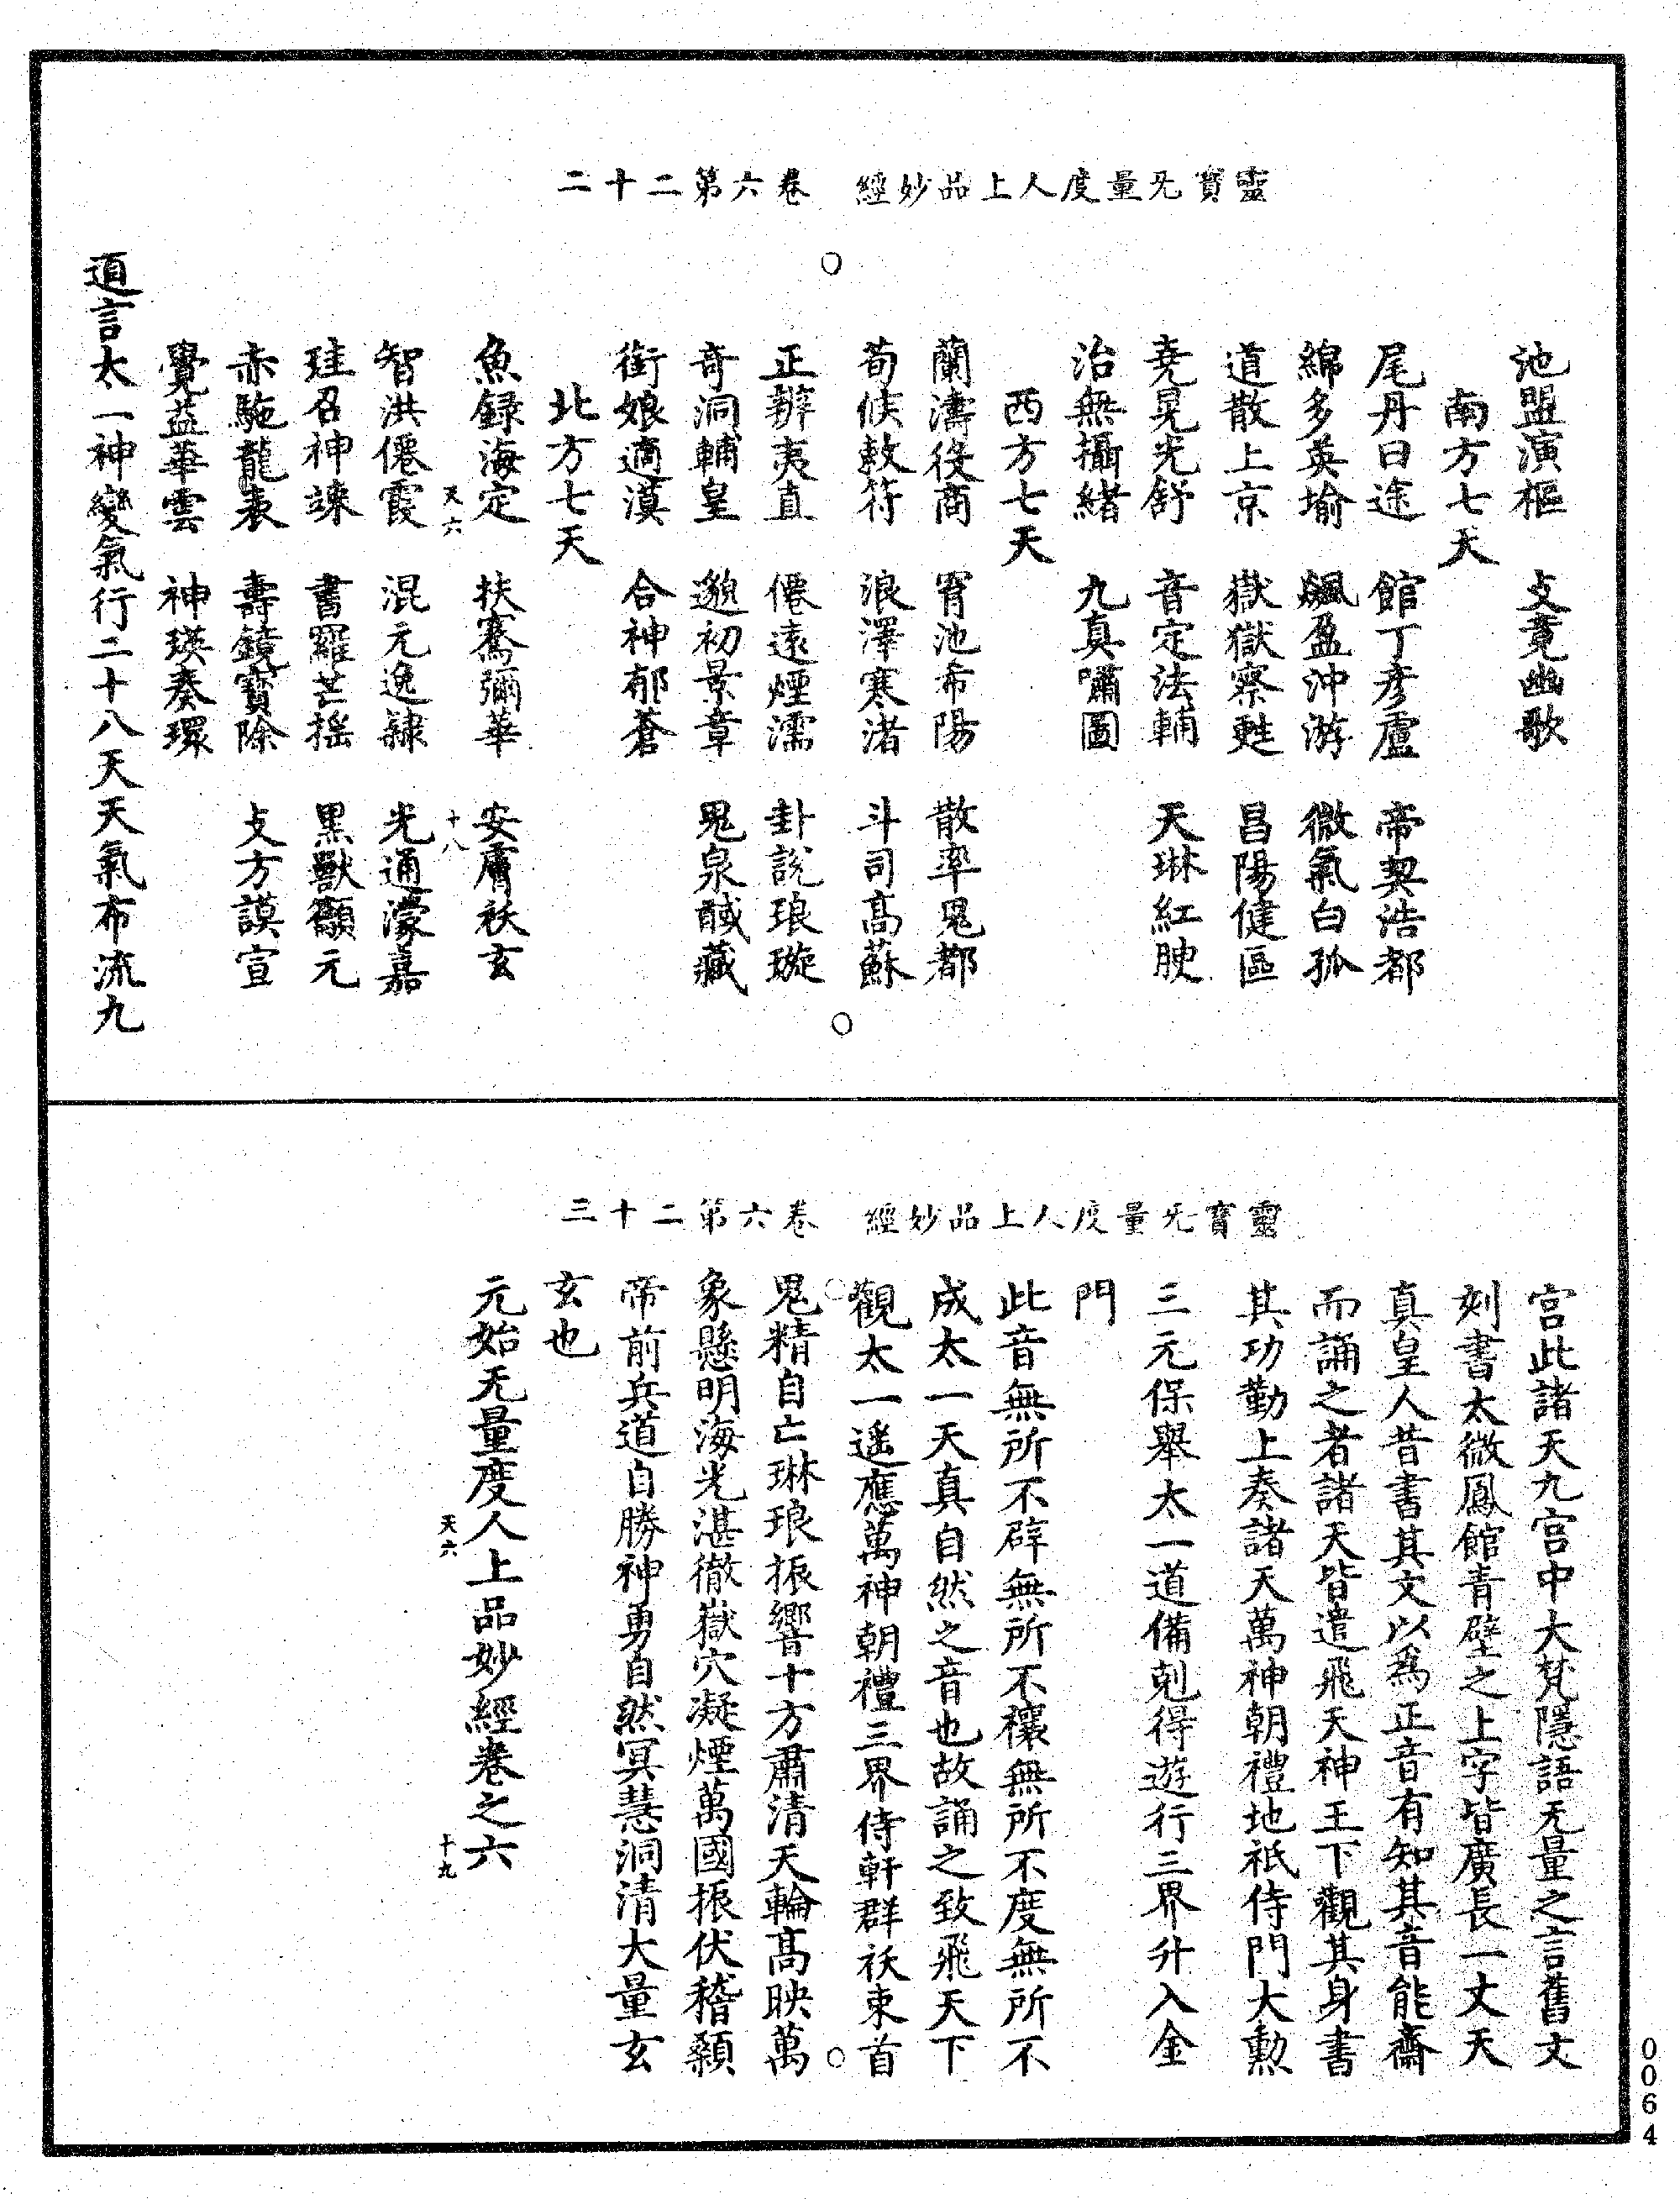 靈寶无量度人上品妙經　卷六第二十二
池盟演樞　攴竟幽歌
南方七天
尾丹日途　館丁彥盧　帝契浩都
綿多英瑜　飆盈沖游　微氣白孤
道散上京　嶽嶽察甦　昌陽健區
堯晃光舒　音定法輔　天琳紅腴
治無攝緒　九真嘯圖
西方七天
蘭濤役商　胥池希陽　散率鬼都
荀候敕符　浪澤寒渚　斗司高蘇
正辦夷直　僊遠煙濡　卦說琅璇
奇洞輔皇　邈初景章　鬼泉馘藏
銜娘適漠　合神郁蒼
北方七天
魚録海定　扶騫彌華　安膚袄玄
天六　十八
智洪僊霞　混元逸隸　光通濛嘉
珪召神竦　書羅芒摇　黑獸顱元
赤駞龍表　壽鏡寶除　攴方謨宣
覺益華雲　神瑛奏環
道言太一神變氣行二十八天天氣布流九
靈寶无量度人上品妙經　卷六第二十三
宫此諸天九宫中大梵隱語无量之言舊文
刻書太微鳳館青壁之上字皆廣長一丈天
真皇人昔書其文以為正音有知其音能齋
而誦之者諸天皆遣飛天神王下觀其身書
其功勤上奏諸天萬神朝禮地祇侍門大勲
三元保舉太一道備剋得遊行三界升入金
門
此音無所不辟無所不禳無所不度無所不
成太一天真自然之音也故誦之致飛天下
觀太一遥應萬神朝禮三界侍軒群袄束首
鬼精自亡琳琅振響十方肅清天輪高映萬
象懸明海光湛徹嶽穴凝煙萬國振伏稽顙
帝前兵道自勝神勇自然冥慧洞清大量玄
玄也
元始无量度人上品妙經卷之六
天六　十九
0064